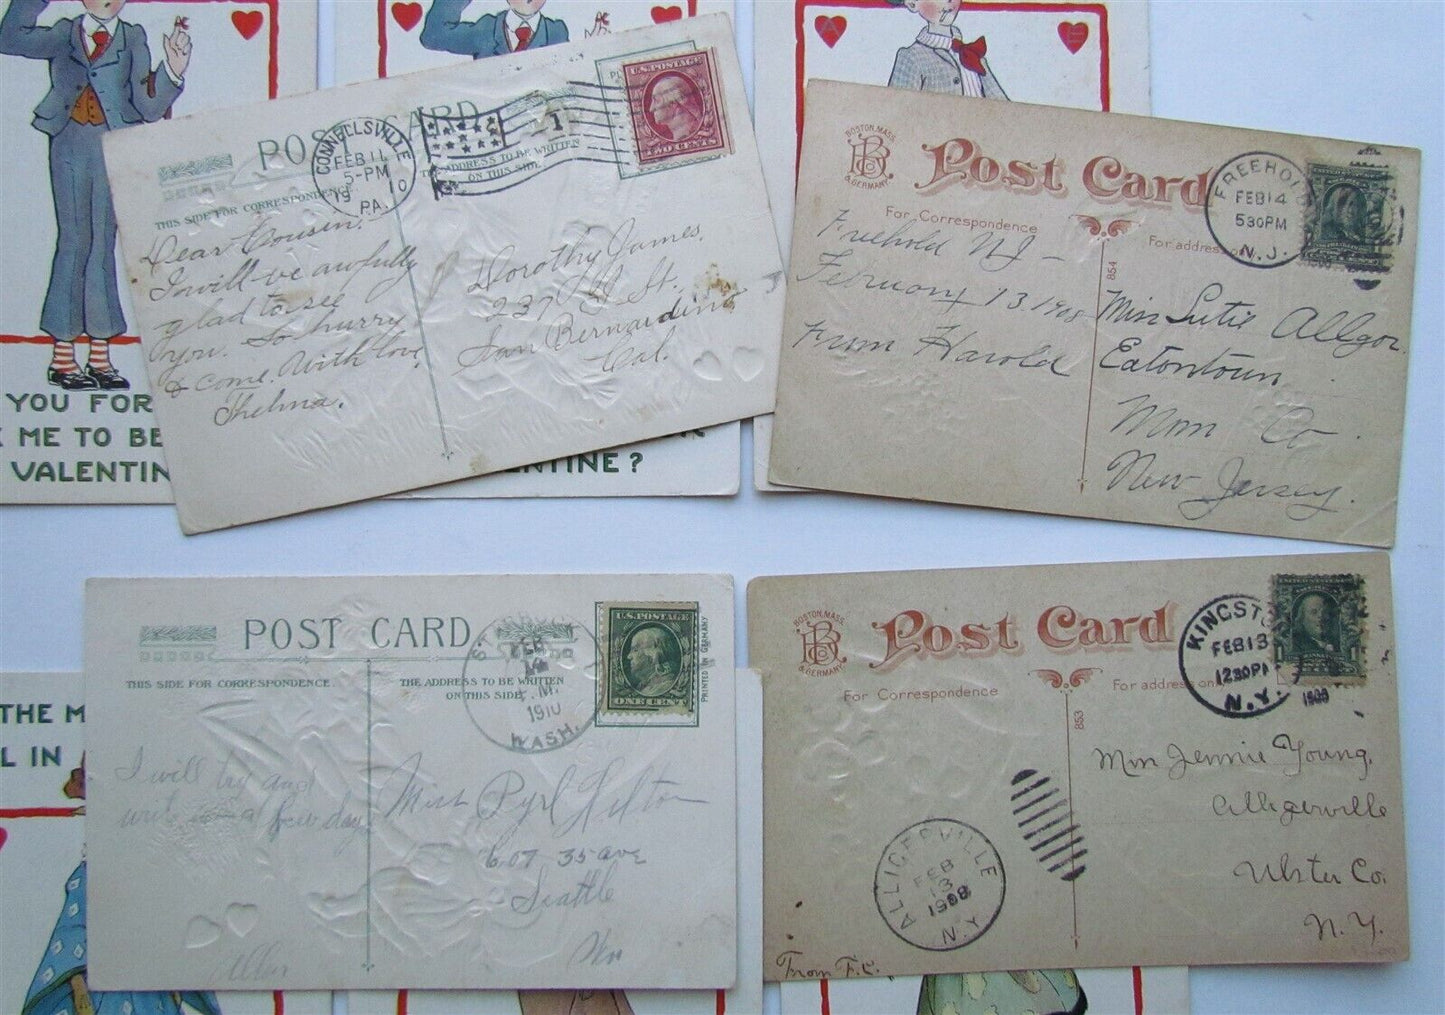 POST CARD
CONNELLSVILLE
FEB 11
5-PM
19 10
PA.
1
U.S. POSTAGE
TWO CENTS
THE ADDRESS TO BE WRITTEN
ON THIS SIDE
THIS SIDE FOR CORRESPONDENCE
Dear Cousin.
I will be awfully
glad to see
you. So hurry
& come. With love
Thelma.
Dorothy James.
237 St.
San Bernardino
Cal.
BOSTON, MASS.
& GERMANY.
Post Card
For Correspondence
For address only
FREEHOLD
FEB 14
530PM
N.J.
854
Freehold NJ -
February 13 1908
From Harold
Miss Sutie Allgor.
Eatontown
Mon Co.
New Jersey.
YOU FOR
ME TO BE
VALENTIN
VALENTINE?
POST CARD
THIS SIDE FOR CORRESPONDENCE.
THE ADDRESS TO BE WRITTEN
ON THIS SIDE
PRINTED IN GERMANY
U.S. POSTAGE
ONE CENT
FEB
14
M.
1910
WASH.
I will try and
write in a few days
Miss Pyrl Hilton
607 35 ave
Seattle
Wn
Allen
THE M
L IN
BOSTON, MASS.
& GERMANY.
Post Card
For Correspondence
For address only
KINGSTON
FEB 13
1230PM
N.Y.
1908
853
Miss Jennie Young,
Alligerville
Ulster Co.
N.Y.
ALLIGERVILLE
FEB
13
1908
N.Y.
From F.C.